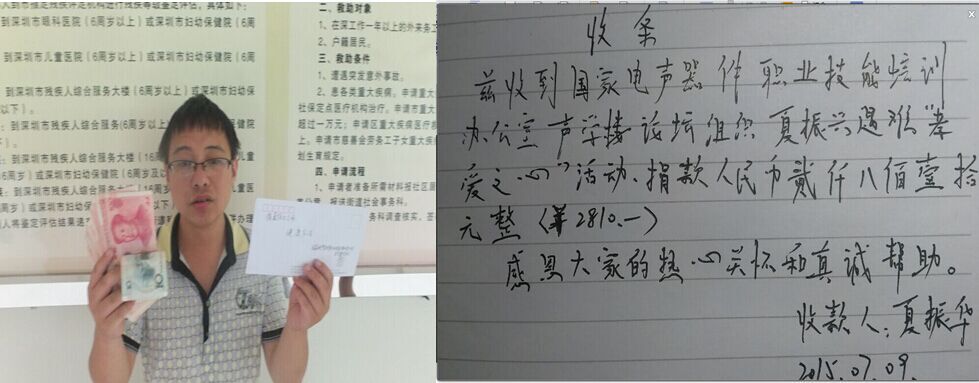 市指定残疾评定机构进行残疾等级鉴定评估，具体如下：
到深圳市眼科医院（6周岁以上）或深圳市妇幼保健院（6周
到深圳市儿童医院（6周岁以上）或深圳市妇幼保健院（6周
到深圳市残疾人综合服务大楼（6周岁以上）或深圳市妇幼保
以下）。
到深圳市残疾人综合服务
深圳市残疾人综合服务大楼
二、救助对象
1、在深工作一年以上的外来务工
2、户籍居民。
三、救助条件
1、遭遇突发意外事故。
2、患各类重大疾病。申请重大
社保定点医疗机构治疗。申请市重大
超过一万元；申请区重大疾病医疗
上。申请市慈善会劳务工子女重大疾病
划生育规定。
四、申请流程
1、申请者准备所需材料报社区
收条
兹收到国家电声器件职业技能培训
办公室声学楼论坛组织夏振兴遇难孝
爱之心”活动、捐款人民币贰仟八佰壹拾
元整（¥2810.—）
感恩大家的热心关怀和真诚帮助。
收款人：夏振华
2015.07.09.